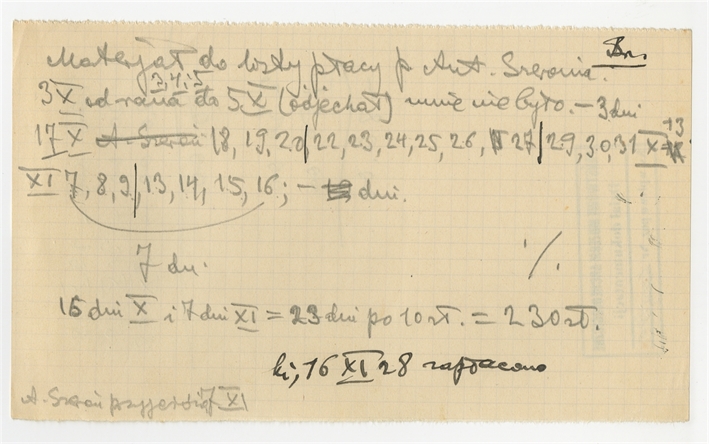 Materjał do listy płacy p Ant. Szeronia.
3, 4, i 5
3 X od rana do 5 X (odjechał) mnie nie było. – 3 dni
17 X A. Szeroń 18, 19, 20 | 22, 23, 24, 25, 26, 27 | 29, 30, 31 X = 13
XI 7, 8, 9 | 13, 14, 15, 16; – dni.
7 dn.
·/.
16 dni X i 7 dni XI = 23 dni po 10 zł. = 230 zł.
16 XI 28 zapłacono
A. Szeroń przyjechał 7 XI